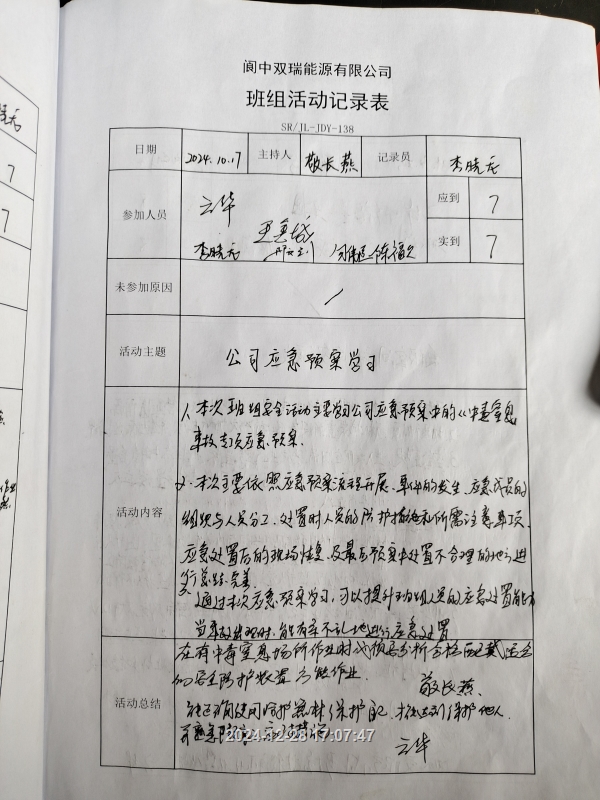 阆中双瑞能源有限公司
班组活动记录表
SR/JL-JDY-138
日期 2024.10.17 主持人 敬长燕 记录员 李晓
参加人员 云华 应到 7
李晓 实到 7
未参加原因 /
活动主题 公司应急预案学习
活动内容
1、本次班组安全活动主要学习公司应急预案中的《中毒窒息
事故专项应急预案.
2、本次主要依照应急预案流程开展、事件的发生、应急成员的
组织与人员分工、处置时人员的防护措施和所需注意事项、
应急处置后的现场恢复、及最后预案中处置不合理的地方进
行总结、完善.
3、通过本次应急预案学习,可以提升班组人员的应急处置能力
当事故出现时,能有条不乱地进行应急处置
活动总结
在有中毒窒息场所作业时 分析合格
的安全防护装置 方能作业.
敬长燕.
使用防护器材保护自己, 保护他人.
云华
2024-12-28 17:07:47